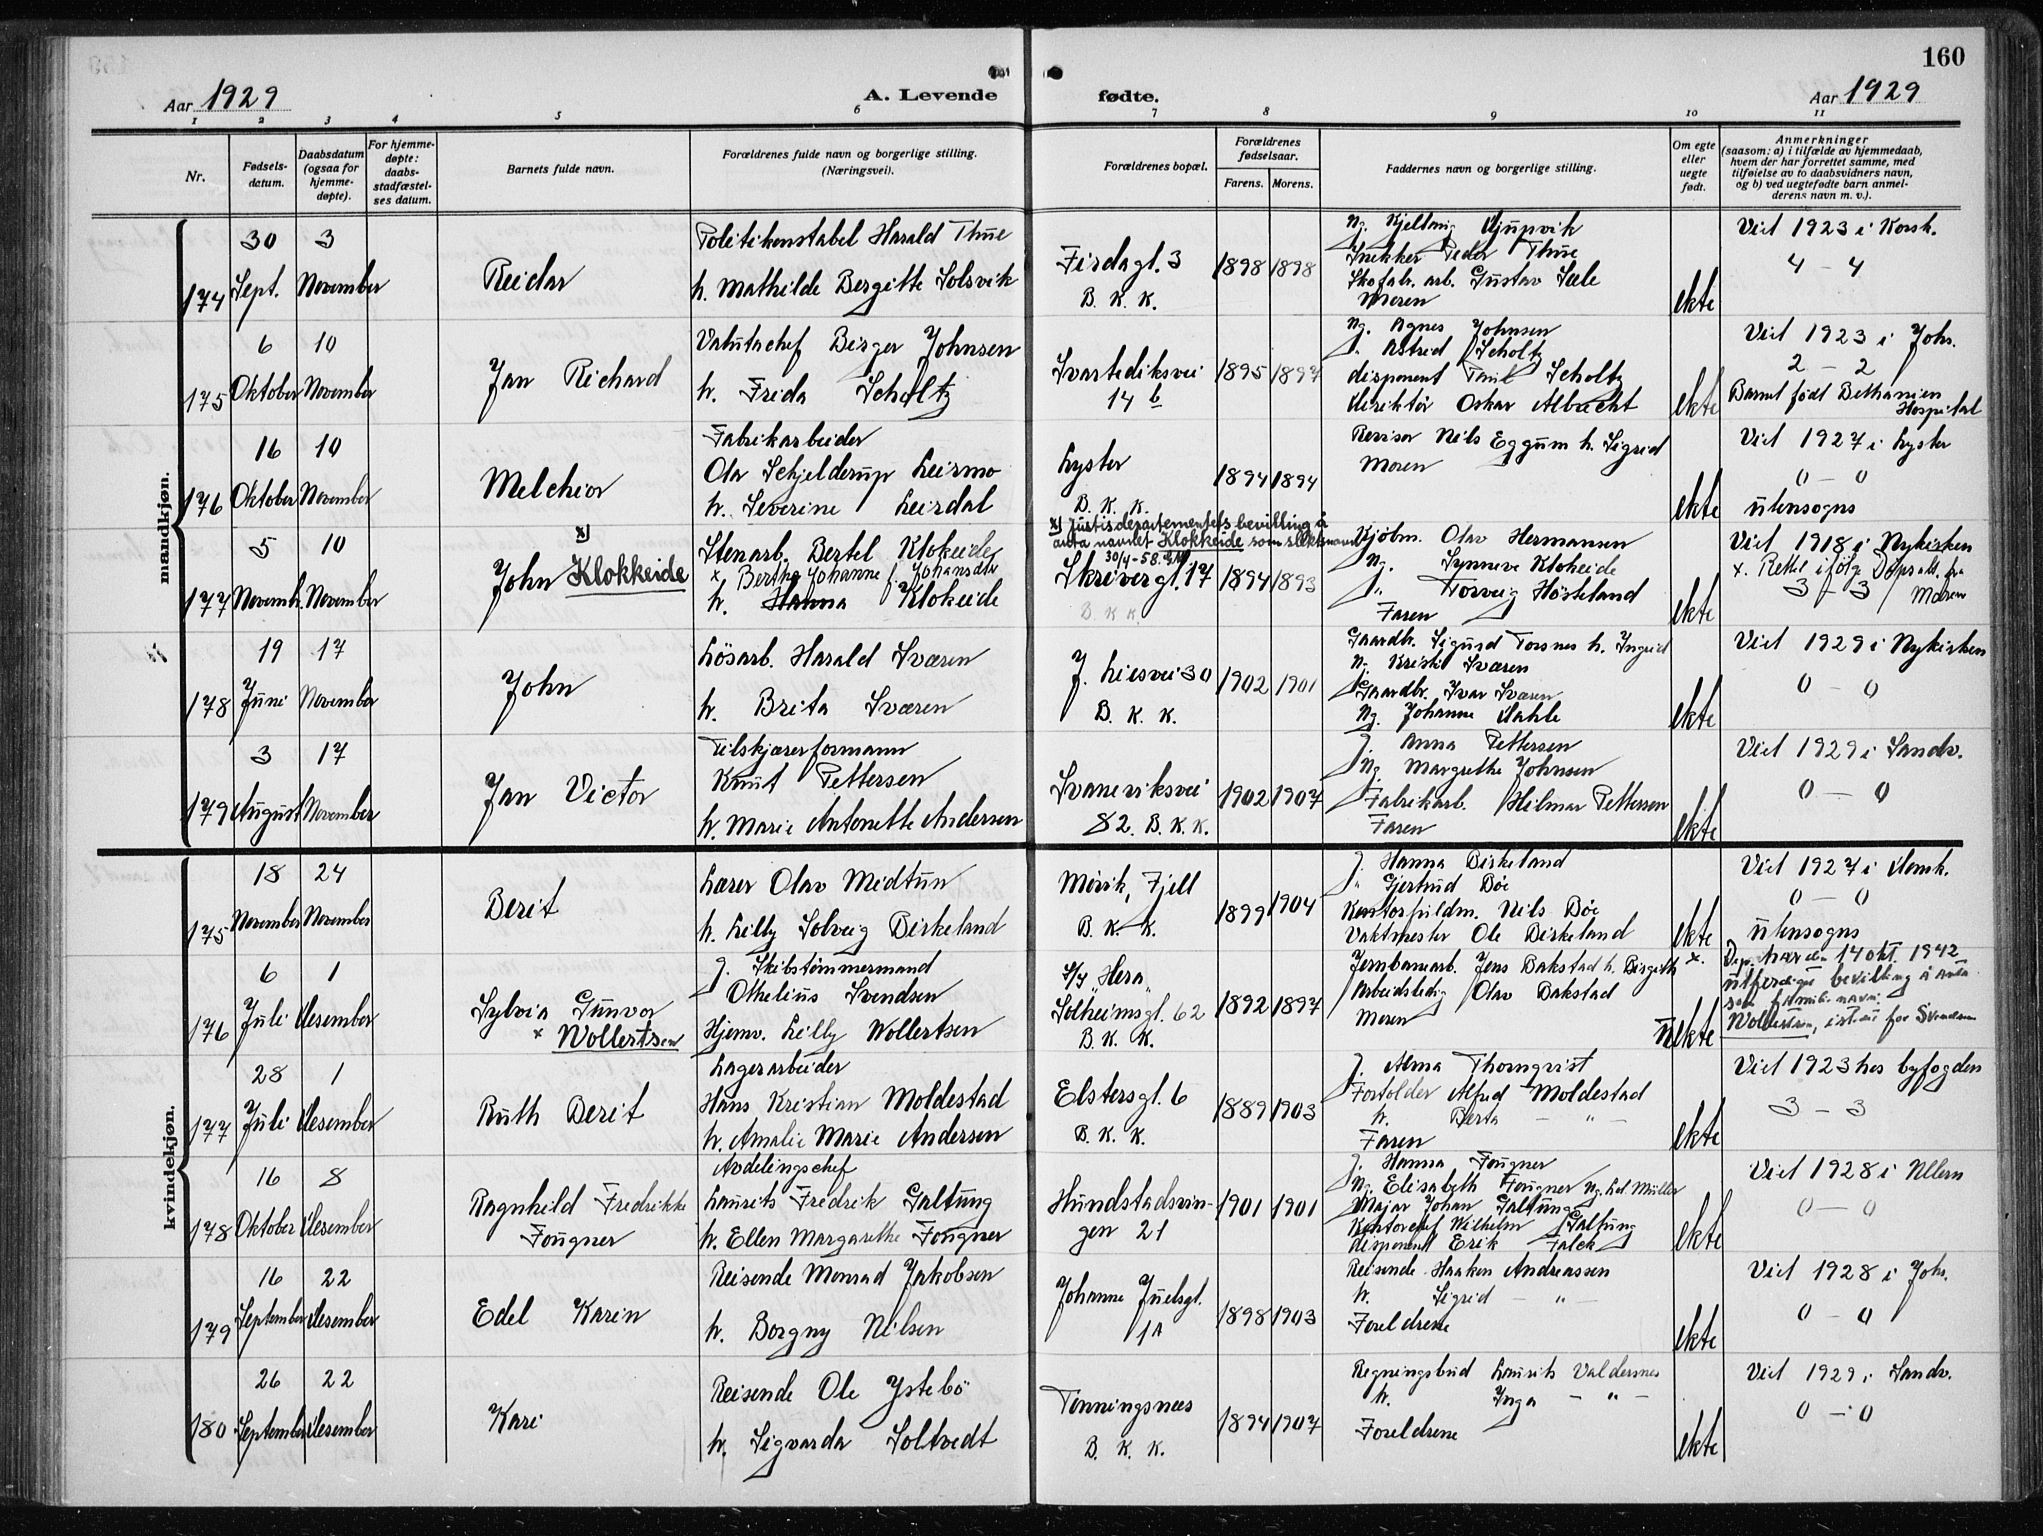 160
Aar 1929
A. Levende fødte.
Aar 1929
1 2 3 4 5 6 7 8 9 10 11
Nr.
Fødsels-
datum.
Daabsdatum
(ogsaa for
hjemme-
døpte).
For hjemme-
døpte:
daabs-
stadfæstel-
ses datum.
Barnets fulde navn.
Forældrenes fulde navn og borgerlige stilling.
(Næringsvei).
Forældrenes bopæl.
Forældrenes
fødselsaar.
Farens. Morens.
Faddernes navn og borgerlige stilling.
Om egte
eller
uegte
født.
Anmerkninger
(saasom: a) i tilfælde av hjemmedaab,
hvem der har forrettet samme, med
tilføielse av to daabsvidners navn,
og b) ved uegtefødte barn anmel-
derens navn m. v.).
mandkjøn.
174
30
Sept.
3
November
Reidar
Politikonstabel Harald Thue
h. Mathilde Bergitte Solsvik
Firdagt. 3
B. K. K.
1898 1898
Snekker Peder Thue
Skofabr. arb. Gustav Sæle
Moren
ekte
Viet 1923 i Korsk.
4 — 4
175
6
Oktober
10
November
Jan Richard
Valutachef Birger Johnsen
h. Frida Scholtz
Svartediksvei
14 b
1895 1897
Ng. Agnes Johnsen
" Astrid Scholtz
disponent Emil Scholtz
direktør Oskar Albrecht
ekte
Viet 1923 i Joh.
2 — 2
Barnet født Bethanien
Hospital
176
16
Oktober
10
November
Melchior
Fabrikarbeider
Olav Schjelderup Leirmo
h. Severine Leirdal
Lyster
B. K. K.
1894 1894
Revisor Nils Eggum h. Sigrid
Moren
ekte
Viet 1927 i Lyster
0 — 0
utensogns
177
5
Novembr.
10
November
x)
John Klokkeide
Stenarb. Bertel Klokeide
x Berthe Johanne f. Johansdtr
h. Hanna Klokeide
x) Justisdepartementets bevilling å
anta navnet Klokkeide som slektsnavn
30/4-58.
Skrivergt. 17
B. K. K.
1894 1893
Kjøbm. Olav Hermansen
Ng. Synneve Klokeide
" Torveig Høiseland
Faren
ekte
Viet 1918 i Nykirken
x. Rettet ifølge Dåpsatt. fra
3 — 3 Moren
178
19
Juni
17
November
John
Løsarb. Harald Sværen
h. Brita Sværen
J. Liesvei 30
B. K. K.
1902 1901
Gaardbr. Sigurd Torsnes h. Ingrid
Ng. Kristi Sværen
Gaardbr. Ivar Sværen
Ng. Johanne Dahle
ekte
Viet 1929 i Nykirken
0 — 0
179
3
August
17
November
Jan Victor
Tilskjærerformann
Knut Pettersen
h. Marie Antonette Andersen
Svaneviksvei
82. B. K. K.
1902 1907
J. Anna Pettersen
Ng. Margrethe Johnsen
Fabrikarb. Hilmar Pettersen
Faren
ekte
Viet 1929 i Sandv.
0 — 0
kvindekjøn.
175
18
November
24
November
Berit
Lærer Olav Midtun
h. Lilly Solveig Birkeland
Morvik, Fjell
B. K. K.
1899 1904
J. Hanna Birkeland
" Gjertrud Bøe
Kontorfuldm. Nils Bøe
Vaktmester Ole Birkeland
ekte
Viet 1927 i Domk.
0 — 0
utensogns
176
6
Juli
1
Desember
Sylvia Gunvor
x Wollertsen
J. Skibstømmermand
Othelius Svendsen
Hjemv. Lilly Wollertsen
S/S "Hera"
Solheimsgt. 62
B. K. K.
1892 1897
Jernbanearb. Jens Bakstad h. Birgith
Arbeidsledig Olav Bakstad
Moren
uekte
x. Dep. har den 14 okt. 1942
utferdiget bevilling å anta
som familienavn:
Wollertsen, istedet for Svendsen
177
28
Juli
1
Desember
Ruth Berit
Lagerarbeider
Hans Kristian Moldestad
h. Amalie Marie Andersen
Elstersgt. 6
B. K. K.
1889 1903
J. Alma Thornqvist
Fortolder Alfred Moldestad
h. Berta — " —
Faren
ekte
Viet 1923 hos byfogden
3 — 3
178
16
Oktober
8
Desember
Ragnhild Fredrikke
Fougner
Avdelingschef
Laurits Fredrik Galtung
h. Ellen Margarethe Fougner
Hundstadsvin-
gen 21
1901 1901
J. Hanna Fougner
Ng. Elisabeth Fougner
Major Johan Galtung
Kontorchef Wilhelm Galtung
disponent Erik Falck
ekte
Viet 1928 i Ullern
0 — 0
179
16
September
22
Desember
Edel Karin
Reisende Monrad Jakobsen
h. Borgny Nilsen
Johanne Juelsgt.
1A
1898 1903
Reisende Haaken Andreassen
h. Sigrid — " —
Foreldrene
ekte
Viet 1928 i Joh.
0 — 0
180
26
September
22
Desember
Kari
Reisende Ole Ystebö
h. Sigvarda Soltvedt
Tenningsnes
B. K. K.
1894 1907
Regningsbud Laurits Valdersnes
h. Inga — " —
Foreldrene
ekte
Viet 1929 i Sandv.
0 — 0